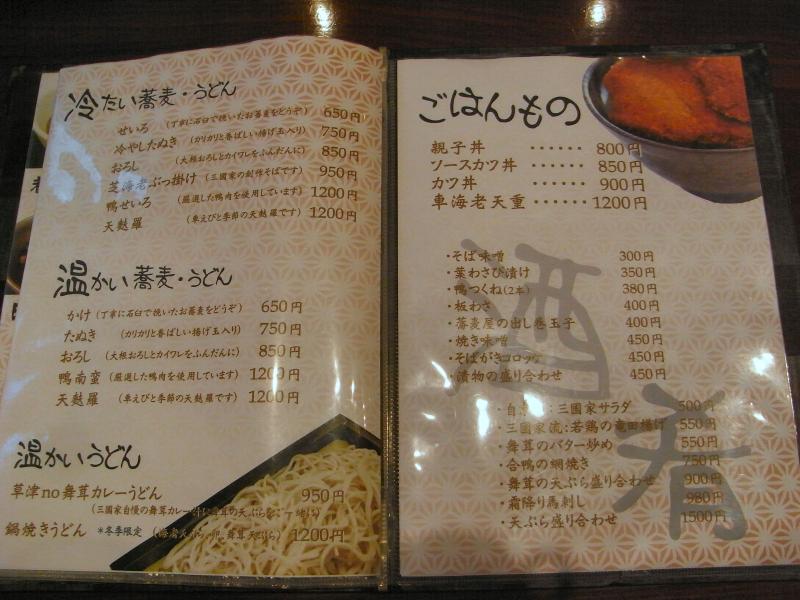 冷たい蕎麦・うどん
せいろ (丁寧に石臼で挽いたお蕎麦をどうぞ) 650円
冷やしたぬき (カリカリと香ばしい揚げ玉入り) 750円
おろし (大根おろしとカイワレをふんだんに) 850円
芝海老ぶっ掛け (三國家の創作そばです) 950円
鴨せいろ (厳選した鴨肉を使用しています) 1200円
天麩羅 (車えびと季節の天麩羅です) 1200円
温かい蕎麦・うどん
かけ (丁寧に石臼で挽いたお蕎麦をどうぞ) 650円
たぬき (カリカリと香ばしい揚げ玉入り) 750円
おろし (大根おろしとカイワレをふんだんに) 850円
鴨南蛮 (厳選した鴨肉を使用しています) 1200円
天麩羅 (車えびと季節の天麩羅です) 1200円
温かいうどん
草津no舞茸カレーうどん 950円
(三國家自慢の舞茸カレー 舞茸の天ぷらをご一緒に)
鍋焼きうどん *冬季限定 (海老天ぷら、卵、舞茸天ぷら) 1200円
ごはんもの
親子丼 ・・・・・・ 800円
ソースカツ丼 ・・・・・・ 850円
カツ丼 ・・・・・・ 900円
車海老天重 ・・・・・・ 1200円
酒肴
・そば味噌 300円
・葉わさび漬け 350円
・鴨つくね(2本) 380円
・板わさ 400円
・蕎麦屋の出し巻玉子 400円
・焼き味噌 450円
・そばがきコロッケ 450円
・漬物の盛り合わせ 450円
・自 :三國家サラダ 500円
・三國家流:若鶏の竜田揚げ 550円
・舞茸のバター炒め 550円
・合鴨の網焼き 750円
・舞茸の天ぷら盛り合わせ 900円
・霜降り馬刺し 980円
・天ぷら盛り合わせ 1500円